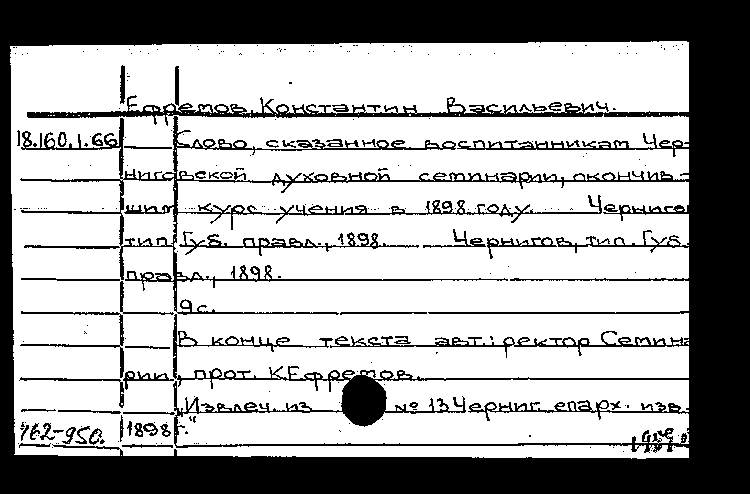 Ефремов, Константин Васильевич.
18.160.1.66 Слово, сказанное воспитанникам Чер-
ниговской духовной семинарии, окончив-
шим курс учения в 1898 году. Чернигов
тип. Губ. правл., 1898. Чернигов, тип. Губ.
правл., 1898.
9с.
В конце текста авт.: ректор Семина
рии, прот. К.Ефремов.
"Извлеч. из № 13 Черниг. епарх. изв.
762-950. 1898 г."